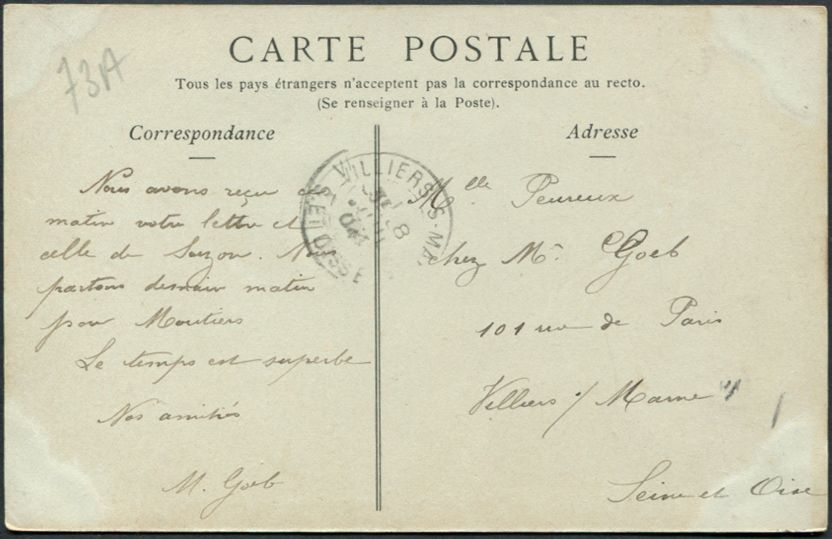 73A
CARTE POSTALE
Tous les pays étrangers n'acceptent pas la correspondance au recto.
(Se renseigner à la Poste).
Correspondance
Adresse
Nous avons reçu ce
matin votre lettre et
celle de Suzon. Nous
partons demain matin
pour Moutiers
Le temps est superbe
Nos amitiés
M. Goeb
VILLIERS-S-MA
S. ET OISE
Mlle Peureux
chez Mr Goeb
101 rue de Paris
Villiers s/ Marne
Seine et Oise